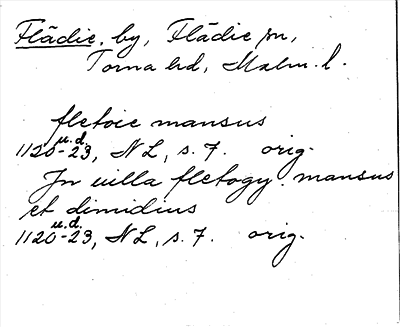 Flädie, by, Flädie sn,
Torna hd, Malm. l.
fletoie mansus
u.d.
1120-23, NL, s. 7. orig.
Jn uilla fletogy. mansus
et dimidius
u.d.
1120-23, NL, s. 7. orig.